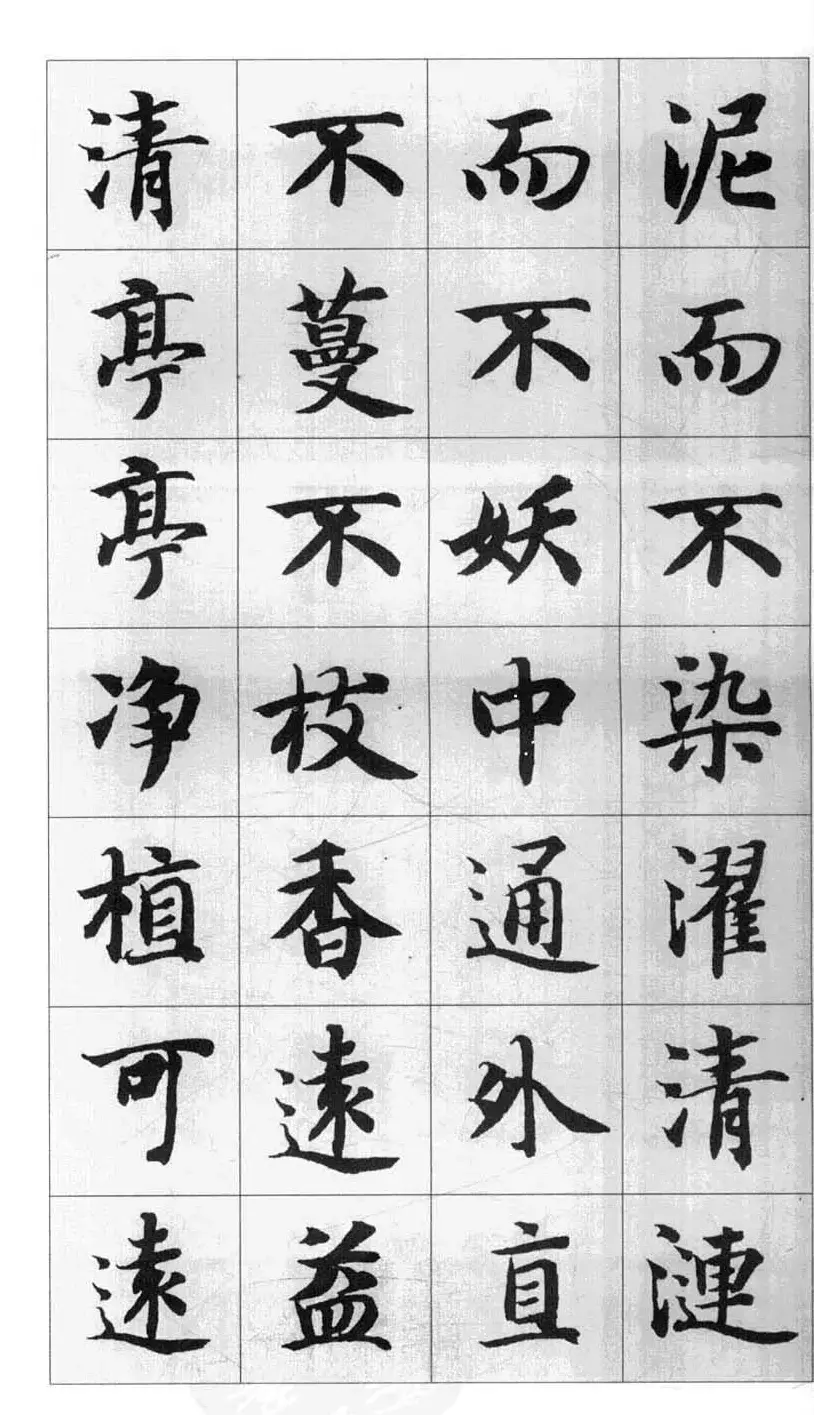 泥而不染濯清漣
而不妖中通外直
不蔓不枝香遠益
清亭亭净植可遠